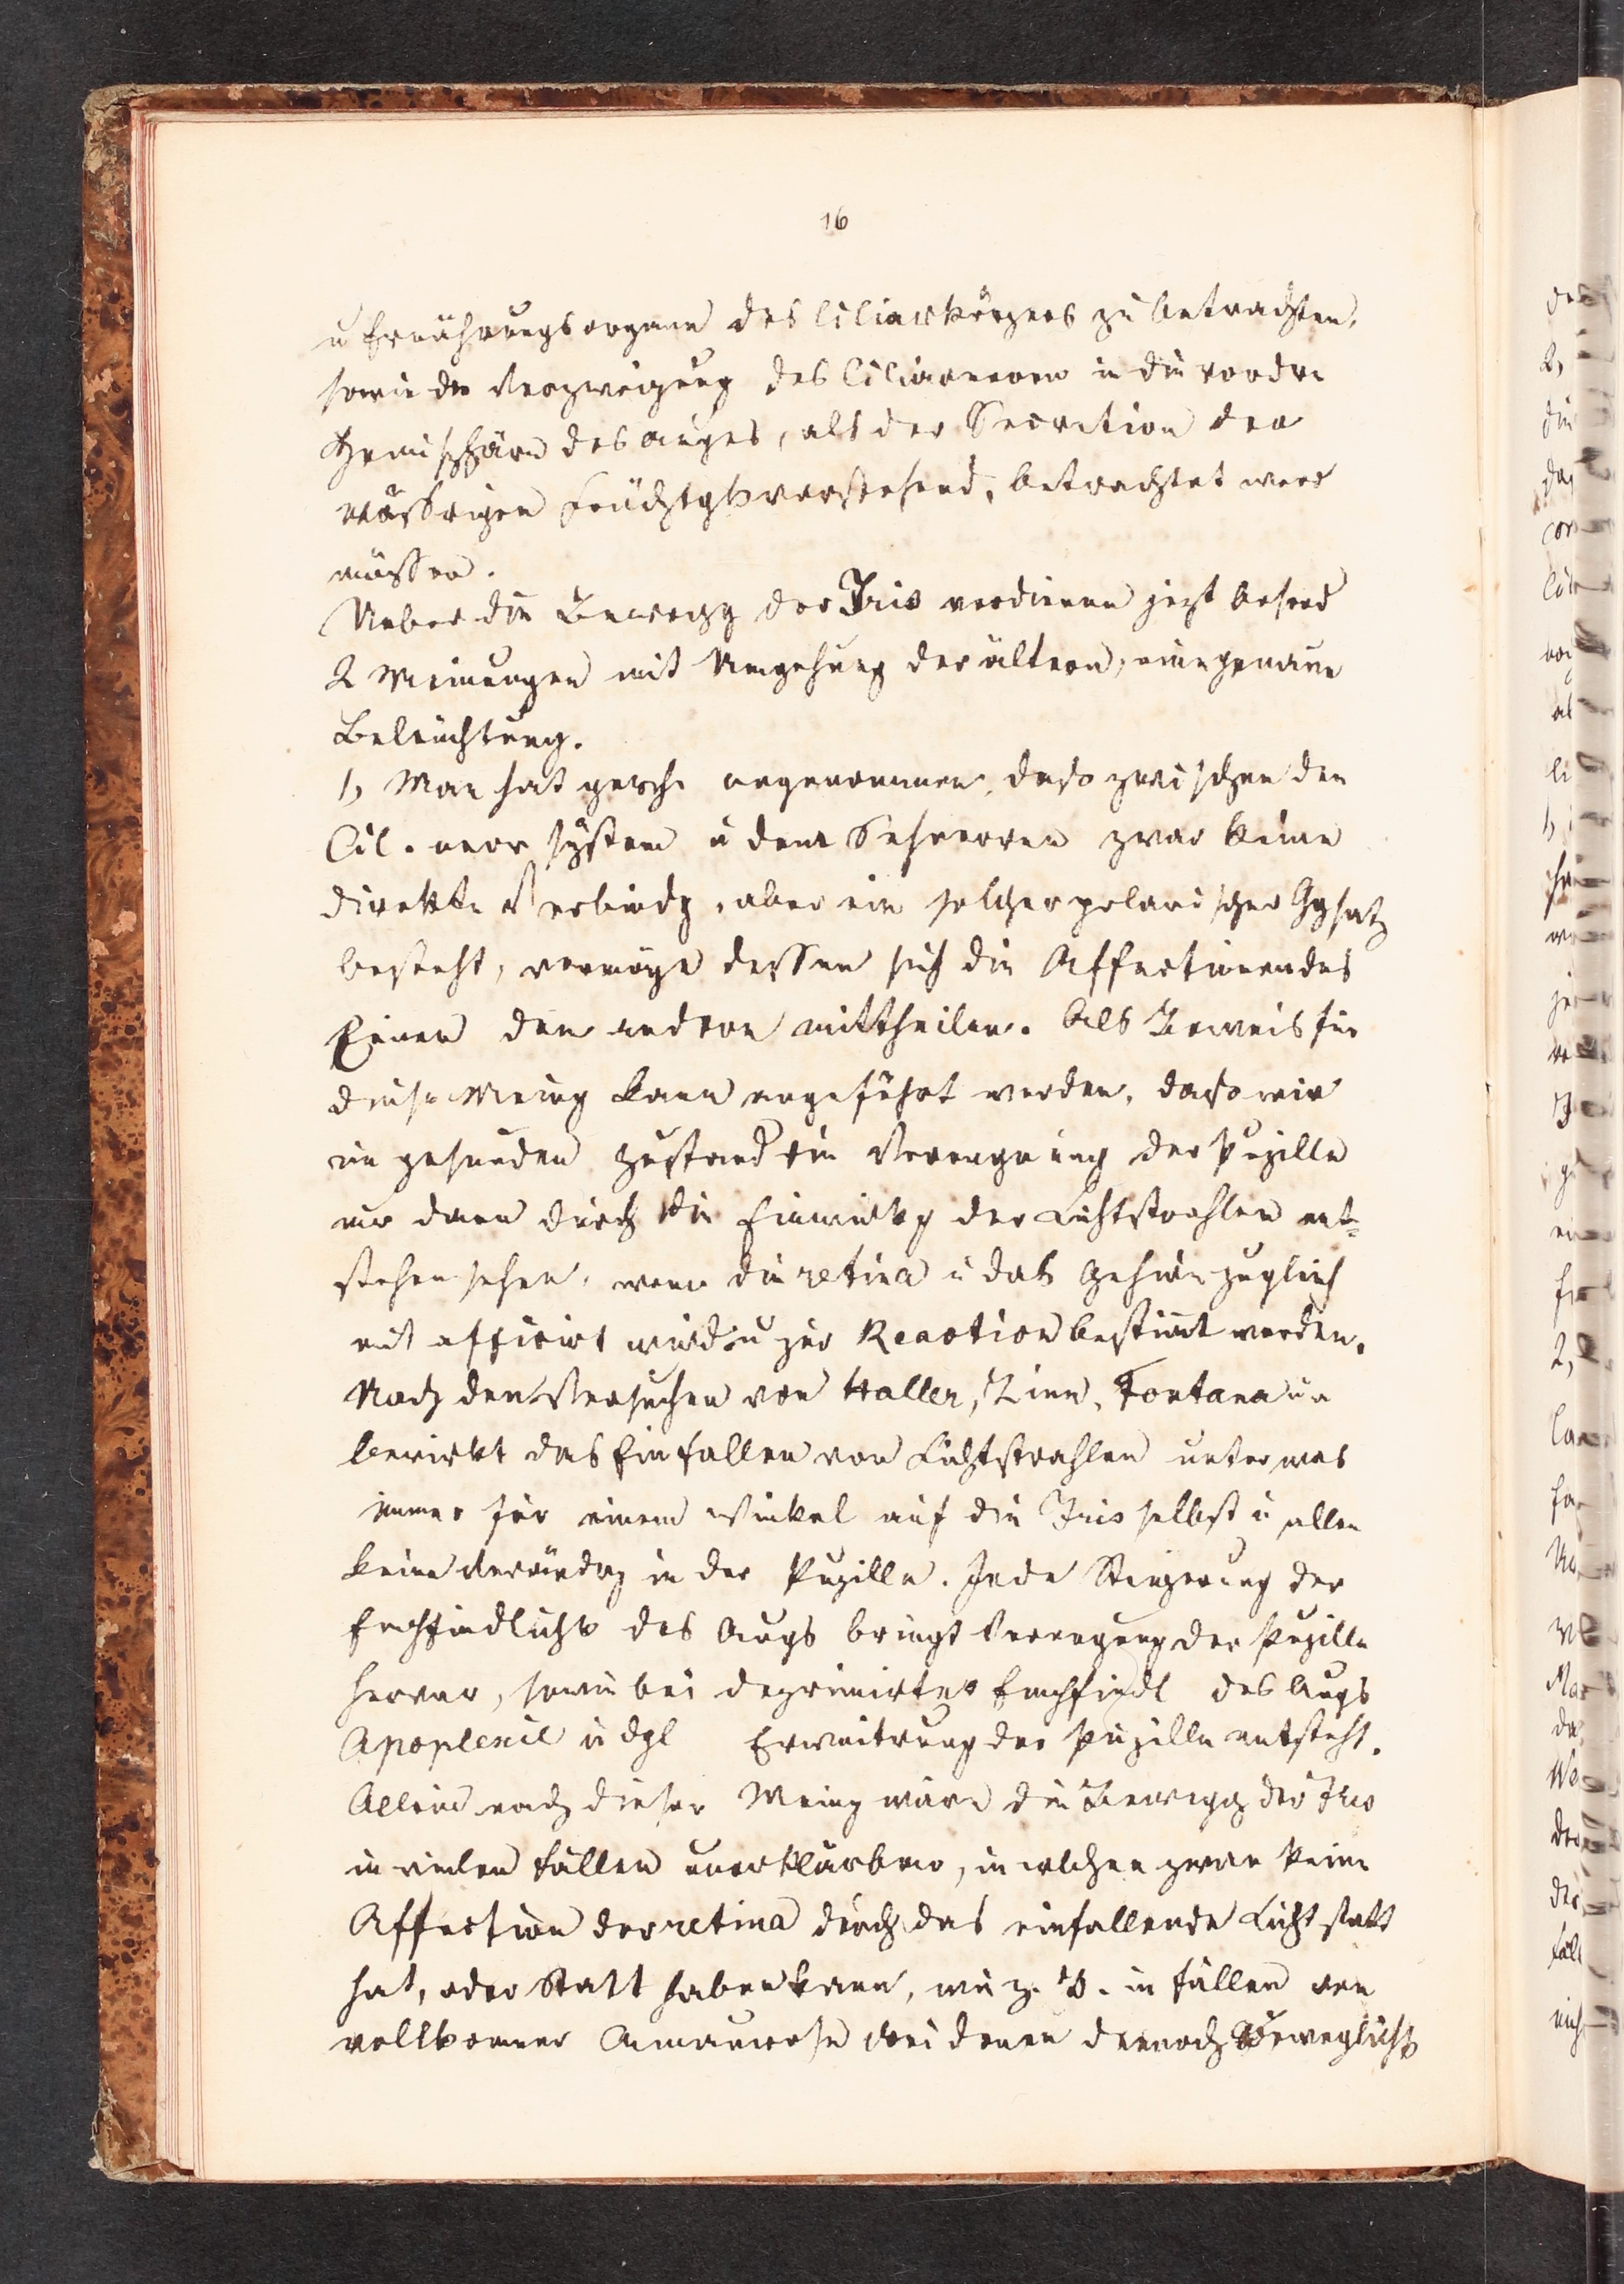 16
u Ernährungsorgane des Ciliarkörpers zu betrachten,
sowie die Verzweigung des Ciliarnerven in die vordre
Hemisphäre des Auges, als der Secretion der
wäßrigen Feuchtgk vorstehend, betrachtet werd
müssen.
Ueber die Bewegg der Iris verdienen jezt besond
2 Meinungen mit Umgehung der ältern, eine genaue
Beleuchtung.
1, Man hat angenommen, daß zwischen den
Cil. nerv system u dem Sehnerven zwar keine
direkte Verbindg, aber ein solcher polarischer Ggsatz
besteht, vermöge dessen sich die Affectionen des
Einen dem andern mittheilen. Als Beweis für
diese Meing kann angeführt werden, daß wir
im gesunden Zustand die Verengerung der Pupille
nur dann durch die Einwirkg der Lichtstrahlen ent-
stehen sehen, wenn die retina u das Gehirn zugleich
mit afficirt wird u zur Reaction bestimt werden.
Nach den Versuchen von Haller, Zinn, Fontana u a
bewirkt das Einfallen von Lichtstrahlen unter was
immer für einem Winkel auf die Iris selbst u allen
keine Verändrg in der Pupille. Jede Steigerung der
Empfindlichk des Augs bringt Verengung der Pupille
hervor, sowie bei deprimirter Empfindl des Augs
Apoplexie u dgl Erweitrung der Pupille entsteht.
Allein nach dieser Meing wäre die Bewegg der Iris
in vielen Fällen unerklärbar, in welchen zwar keine
Affection der retina durch das einfallende Licht statt
hat, oder Statt haben kann, wie z. B. in Fällen von
vollkomner Amaurose bei denen dennoch Beweglichk